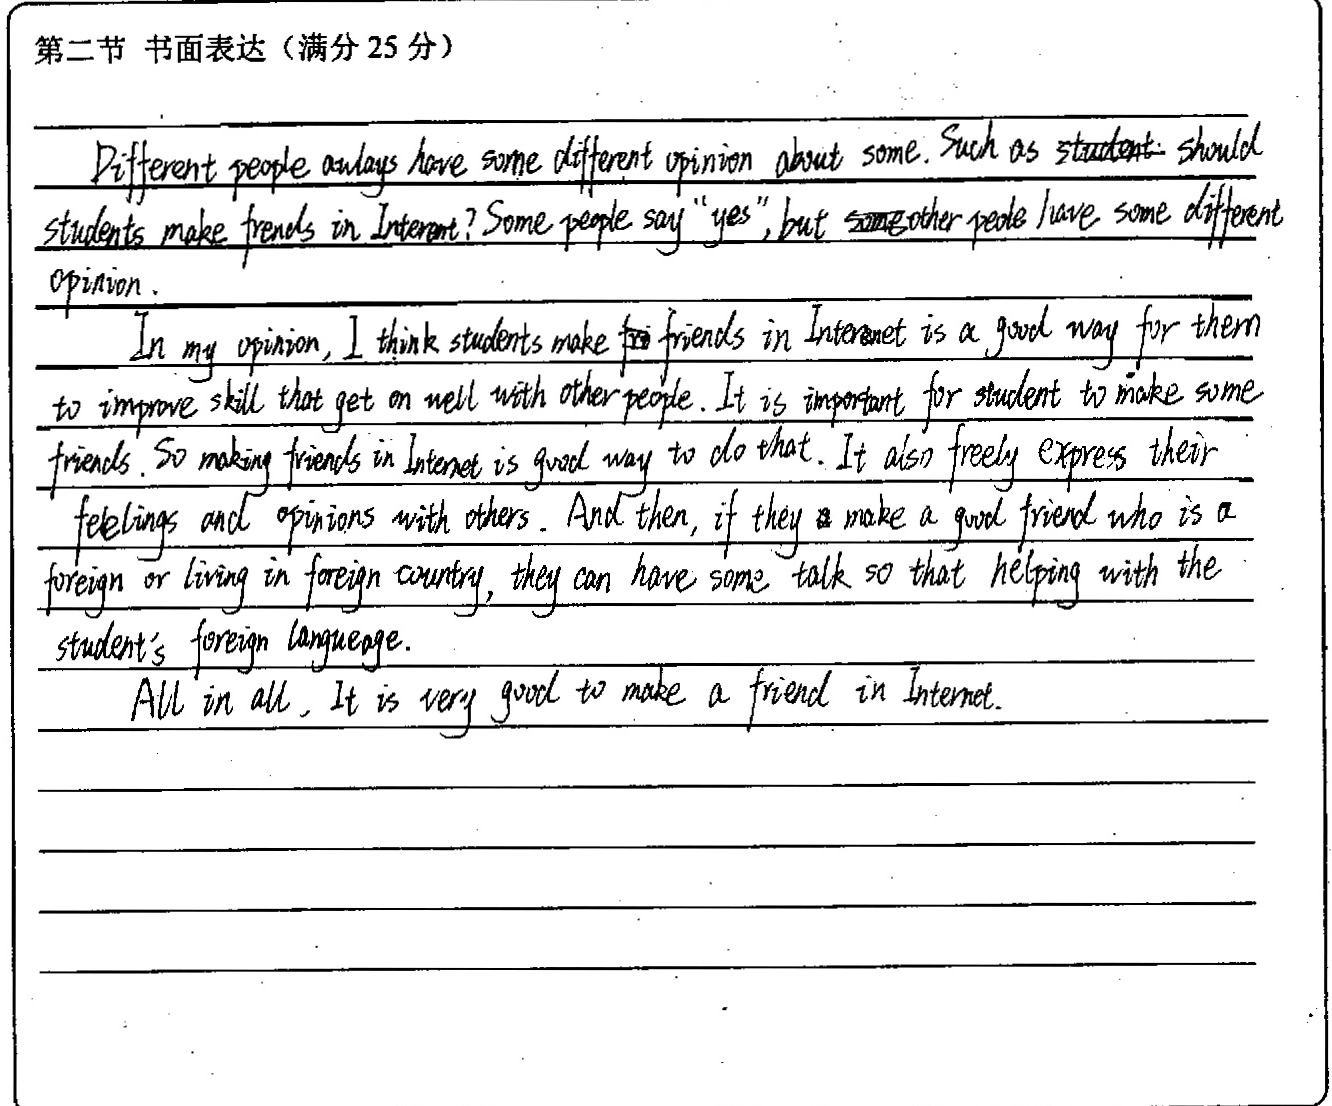 第二节 书面表达（满分 25 分）
Different people awlays have some different opinion about some. Such as student should
students make frends in Internet? Some people say "yes", but some other peole have some different
opinion.
In my opinion, I think students make fri friends in Internet is a good way for them
to improve skill that get on well with other people. It is important for student to make some
friends. So making friends in Internet is good way to do that. It also freely express their
feelings and opinions with others. And then, if they a make a good friend who is a
foreign or living in foreign country, they can have some talk so that helping with the
student's foreign langueage.
All in all, It is very good to make a friend in Internet.